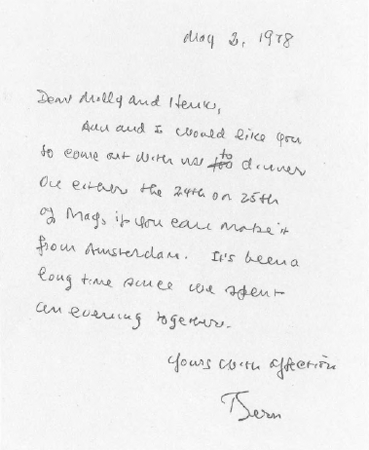 May 2, 1978
Dear Molly and Henk,
Ann and I would like you
to come out with us to dinner
on either the 24th or 25th
of May, if you can make it
from Amsterdam. It's been a
long time since we spent
an evening together.
Yours with affection
Bern